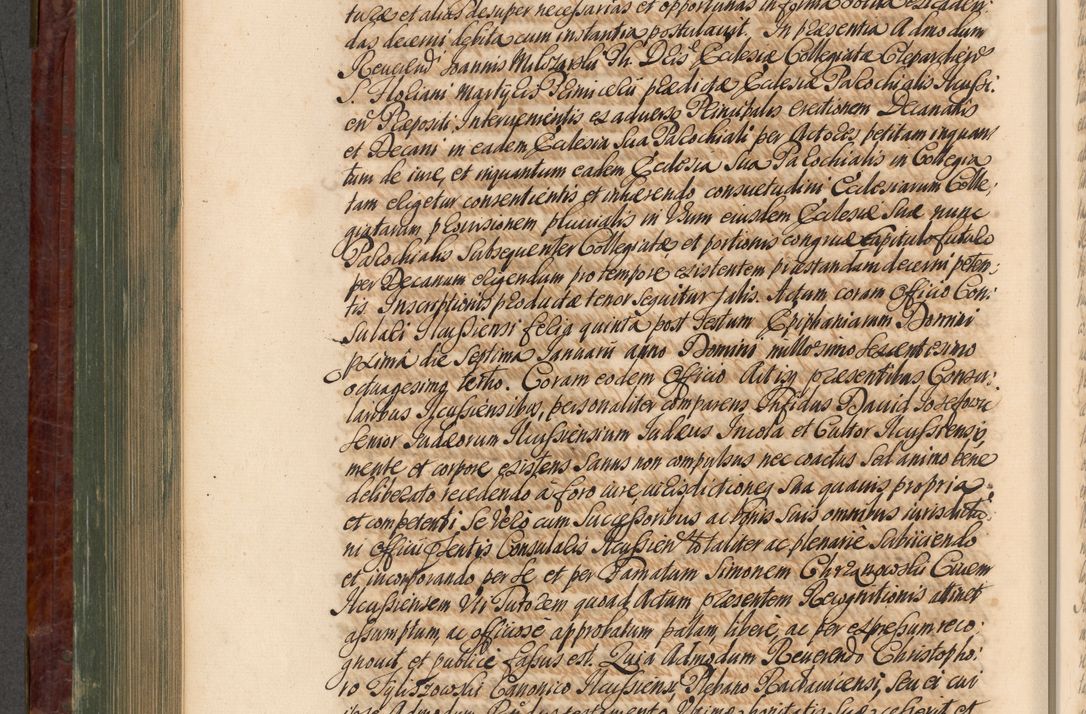 turæ et alias desuper necessarias et opportunas in forma solita
das decerni debita cum instantia postulavit. In præsentia Admodum
Reverendi Joannis Milczarski Ph. Dris Ecclesiæ Collegiatæ Cleparden
S. Floriani Martyris Primicerii prædictæ Ecclesiæ Parochialis Ilcussi:
en Præpositi Intervenientis ex adverso Principalis erectionem Decanatus
et Decani in eadem Ecclesia Sua Parochiali per Actores petitam inquan
tum de iure, et inquantum eadem Ecclesia Sua Parochialis in Collegia
tam erigetur consentientis et inhærendo consuetudini Ecclesiarum Colle:
giatarum provisionem pluvialis in Usum eiusdem Ecclesiæ Suæ nunc
Parochialis Subsequenter Collegiatæ, et portionis congruæ Capitulo futuro
per Decanum erigendum pro tempore existentem præstandam decerni peten:
tis. Inscriptionis productæ tenor sequitur talis. Actum coram Officio Con:
sulari Ilcussiensi feria quinta post Festum Epiphaniarum Domini
proxima die Septima Januarii anno Domini millesimo sexcentesimo
octuagesimo tertio. Coram eodem Officio Actisq præsentibus Consu:
laribus Ilcussiensibus, personaliter comparens Infidus David Josefowic
Senior Judæorum Ilcussiensium Judæus Incola et Cultor Ilcussiensis,
mente et corpore existens sanus non compulsus nec coactus sed animo bene
deliberato recedendo à foro iure iurisdictioneq sua quavis propria
et competenti Se vero cum Successoribus ac bonis suis omnibus iurisdictio
ni Officii pntis Consularis Ilcussien totaliter ac plenarie subiiciendo
et incorporando per se et per Famatum Simonem Chrzanowski Civem
Ilcussiensem Uti Tutorem quoad Actum præsentem Recognitionis attinet
assumptum, ac officiose approbatum palam, libere, ac per expressum reco:
gnovit, et publice fassus est. Quia Admodum Reverendo Christopho:
ro Fyliszowski Canonico Ilcussiensi, Plebano Raclavicensi, seu ei cui
ipse Admodum Rndus testamento Ultimæ voluntatis Suæ